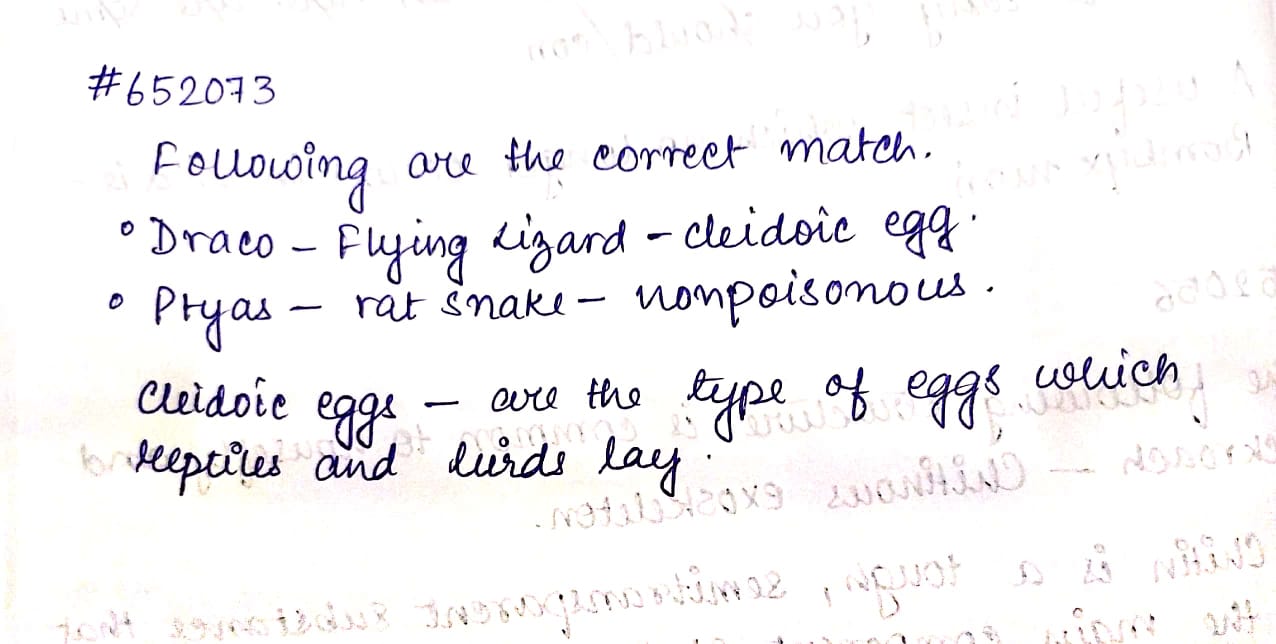 #652073
Following are the correct match.
° Draco - Flying Lizard - cleidoic egg.
° Ptyas - rat snake - nonpoisonous.
Cleidoic eggs - are the type of eggs which
reptiles and birds lay.